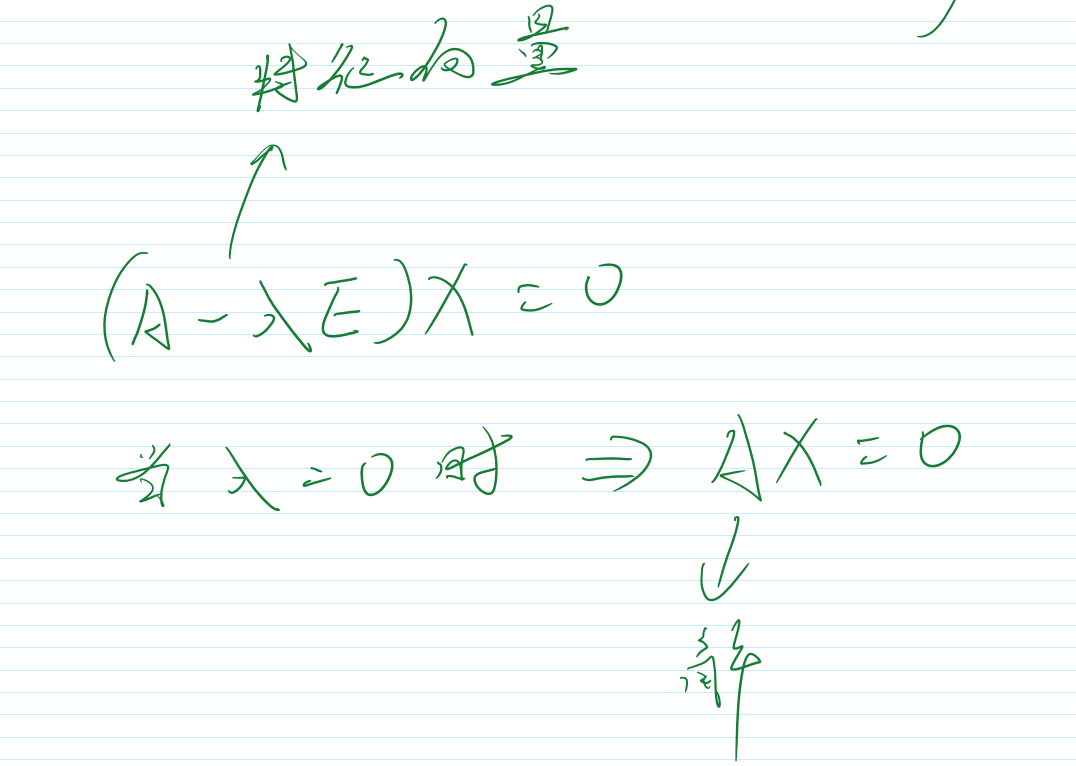 特征向量
↑
(A-λE)X=0
当λ=0时⇒AX=0
↓
解